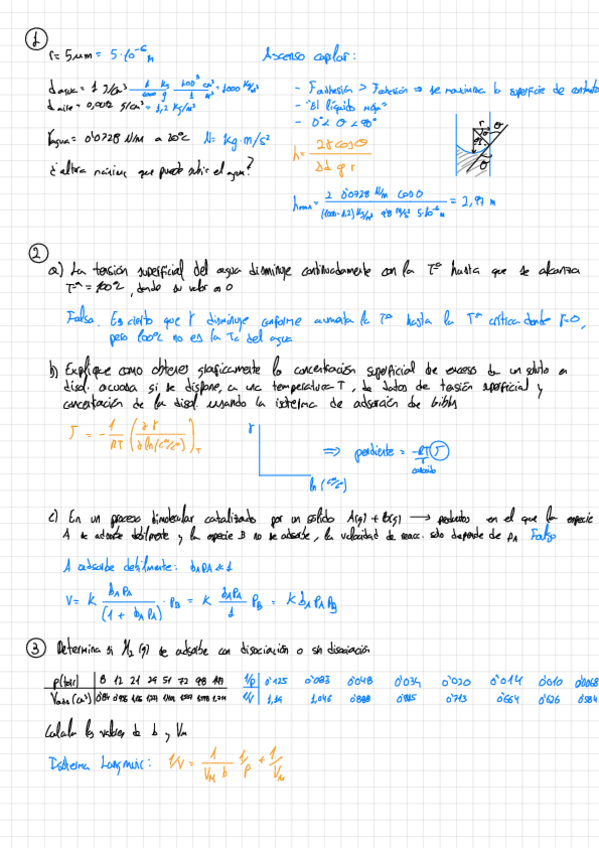 1
r = 5 μm = 5·10⁻⁶ m
Ascenso capilar:
d agua = 1 g/cm³ · 1 kg / 1000 g · 100³ cm³ / 1 m³ = 1000 kg/m³
d aire = 0,0012 g/cm³ = 1,2 kg/m³
γagua = 0'0728 N/m a 20ºC N = kg·m/s²
¿altura máxima que puede subir el agua?
- Fadhesión > Fcohesión ⇒ se maximiza la superficie de contacto
- "El líquido moja"
- 0º < θ < 90º
h = 2γ cosθ / Δd g r
r θ
θ
hmax = 2 0'0728 N/m cos 0 / (1000-1,2) kg/m³ 9'8 m/s² 5·10⁻⁶ m = 2,97 m
2
a) La tensión superficial del agua disminuye continuadamente con la Tª hasta que se alcanza
Tª = 100ºC, donde su valor es 0
Falsa. Es cierto que γ disminuye conforme aumenta la Tª hasta la Tª crítica donde γ=0,
pero 100ºC no es la Tc del agua
b) Explique como obtener gráficamente la concentración superficial de exceso de un soluto a
disol. acuosa si se dispone, a una temperatura T, de datos de tensión superficial y
concentración de la disol. usando la isoterma de adsorción de Gibbs
Γ = - 1/RT (∂γ / ∂ln(c/cº))T
γ
ln (c/cº)
⇒ pendiente = -RT Γ
conocido
c) En un proceso bimolecular catalizado por un sólido A(g) + B(g) → productos en el que la especie
A se adsorbe débilmente y la especie B no se adsorbe, la velocidad de reacc. solo depende de pA Falso
A adsorbe débilmente: bA PA ≪ 1
V = k bA PA / (1 + bA PA) · PB = k bA PA / 1 PB = k bA PA PB
3 Determina si H₂ (g) se adsorbe con disociación o sin disociación
p(torr) 8 12 21 29 51 72 98 148 1/p 0'125 0'083 0'048 0'034 0'020 0'014 0'010 0'0068
Vads (cm³) 1/V 1,14 1,046 0'888 0'713 0'664 0'626 0'584
Calcula los valores de b y Vm
Isoterma Langmuir: 1/V = 1 / VM b 1/p + 1/VM